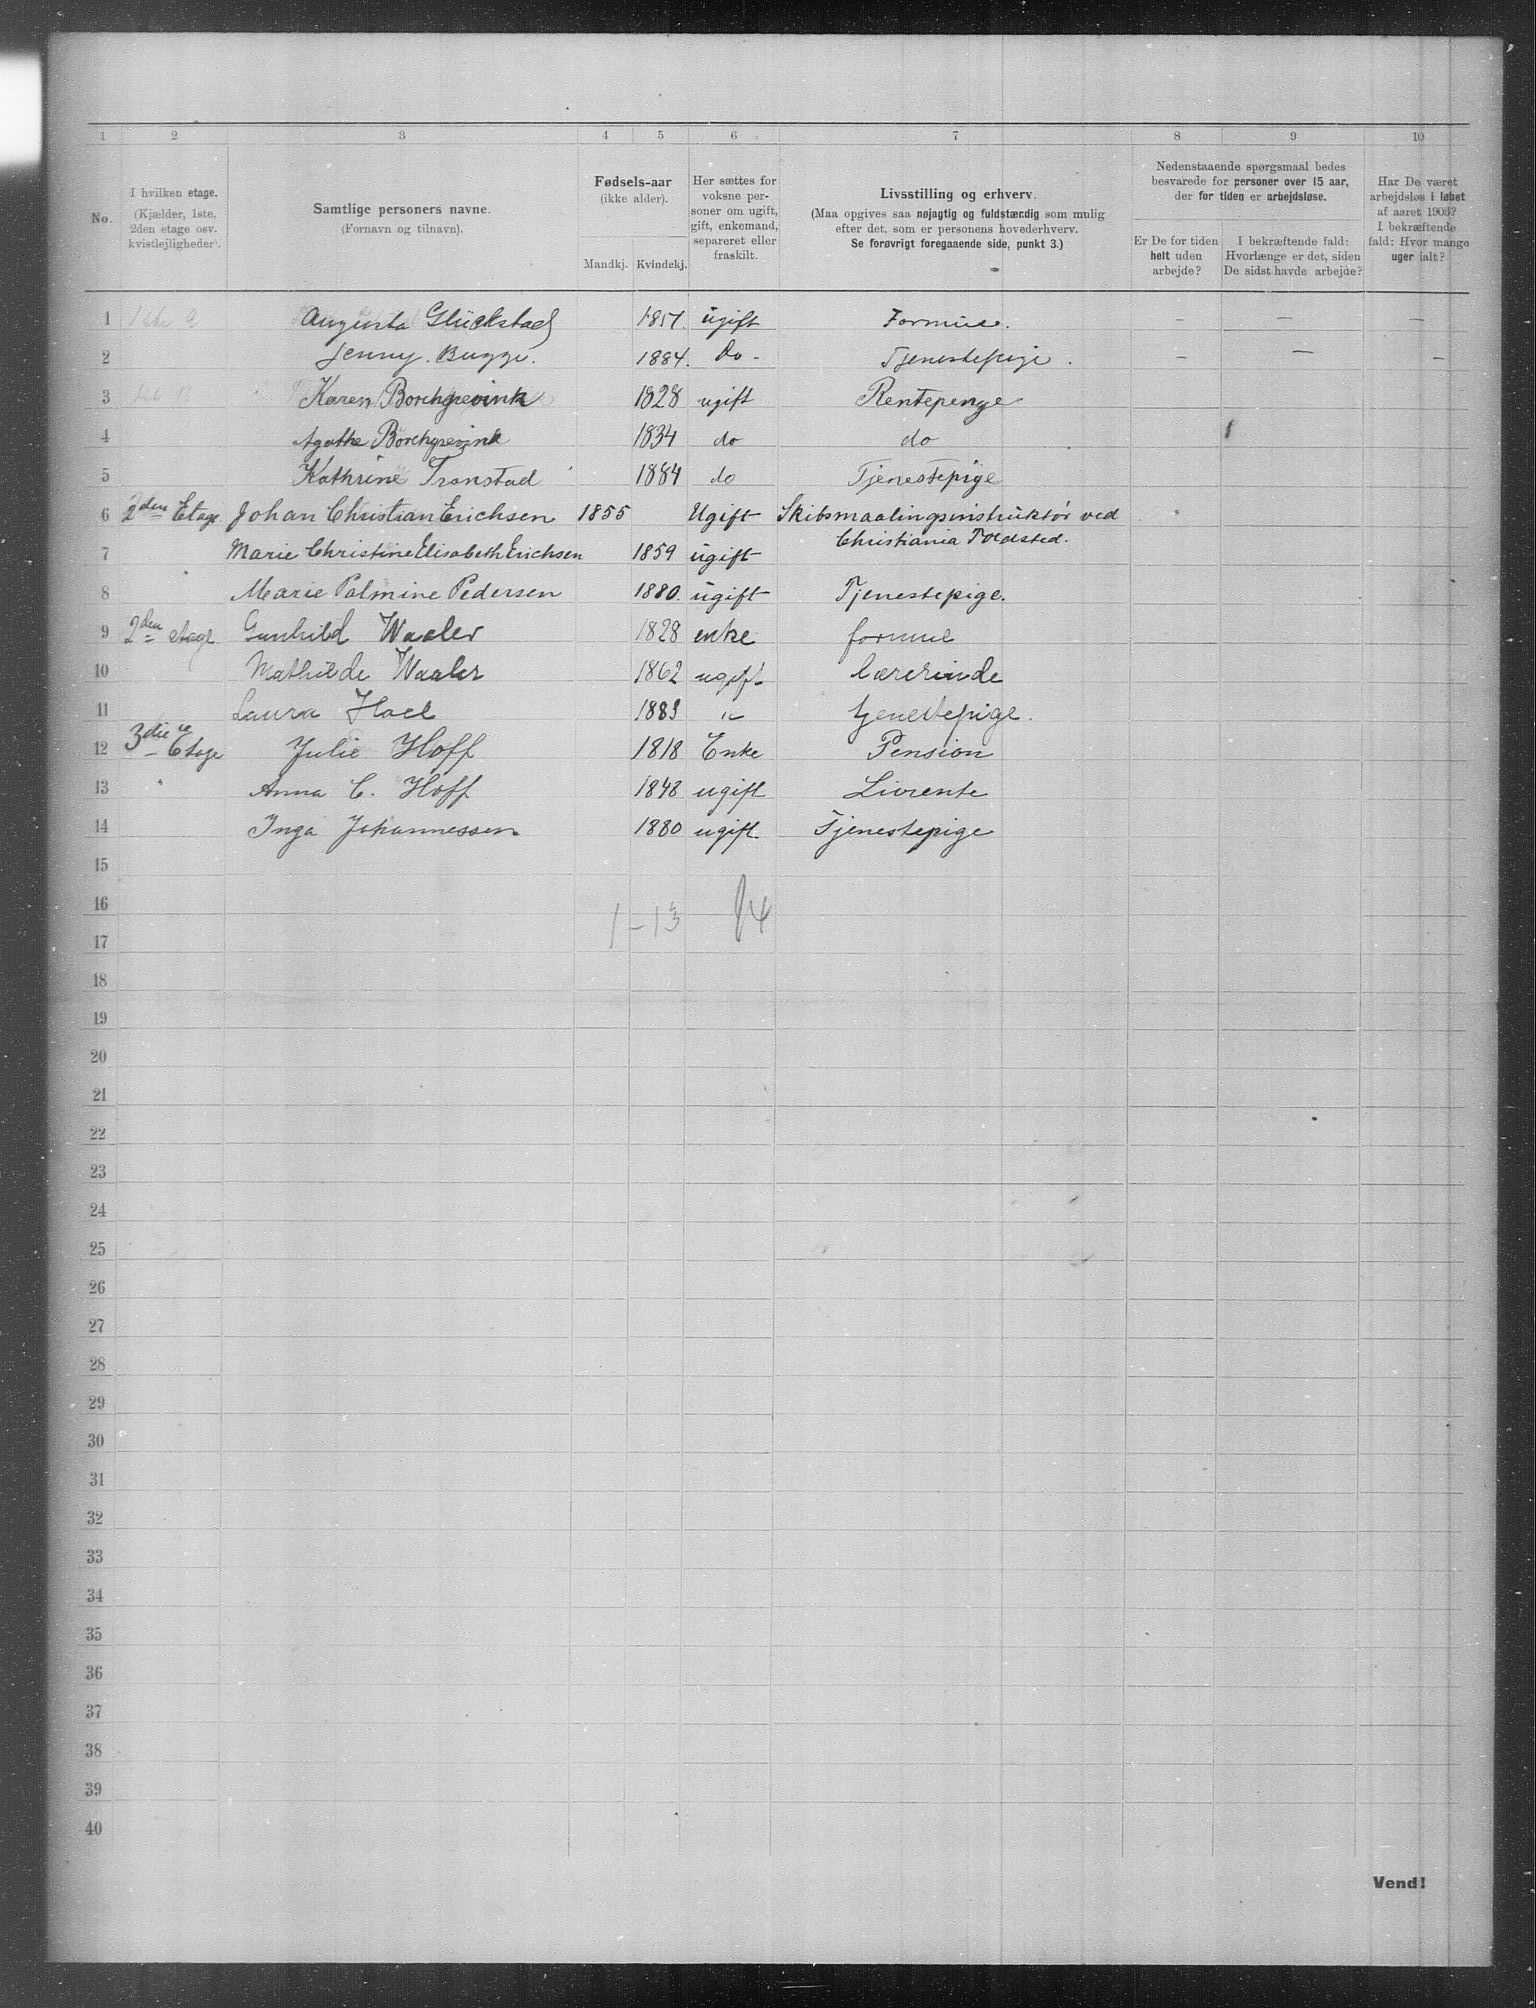 1 2 3 4 5 6 7 8 9 10
No.
I hvilken etage.
(Kjælder, 1ste,
2den etage osv.
kvistlejligheder).
Samtlige personers navne.
(Fornavn og tilnavn).
Fødsels-aar
(ikke alder).
Mandkj. Kvindekj.
Her sættes for
voksne per-
soner om ugift,
gift, enkemand,
separeret eller
fraskilt.
Livsstilling og erhverv.
(Maa opgives saa nøjagtig og fuldstændig som mulig
efter det, som er personens hovederhverv.
Se forøvrigt foregaaende side, punkt 3.)
Nedenstaaende spørgsmaal bedes
besvarede for personer over 15 aar,
der for tiden er arbejdsløse.
Er De for tiden
helt uden
arbejde?
I bekræftende fald:
Hvorlænge er det, siden
De sidst havde arbejde?
Har De været
arbejdsløs i løbet
af aaret 1903?
I bekræftende
fald: Hvor mange
uger ialt?
1 1ste Augusta Glückstad 1857. ugift Formue. – – –
2 Jenny Bugge. 1884. do. Tjenestepige. – – –
3 Karen Borchgrevink 1828 ugift Rentepenge
4 Agathe Borchgrevink 1834 do do
5 Kathrine Tronstad 1884 do Tjenestepige
6 2den Etage Johan Christian Erichsen 1855 Ugift Skibsmaalingsinstruktør ved
Christiania Toldsted.
7 Marie Christine Elisabeth Erichsen 1859 ugift
8 Marie Palmine Pedersen 1880. ugift Tjenestepige.
9 2den etage Gunhild Waaler 1828 enke formue
10 Mathilde Waaler 1862 ugift lærerinde
11 Laura Hoel 1883 " tjenestepige.
12 3die Etage Julie Hoff 1818 Enke Pension
13 Anna C. Hoff 1848 ugift Livrente
14 Inga Johannessen 1880 ugift Tjenestepige
15
16
1–13 14
17
18
19
20
21
22
23
24
25
26
27
28
29
30
31
32
33
34
35
36
37
38
39
40
Vend!